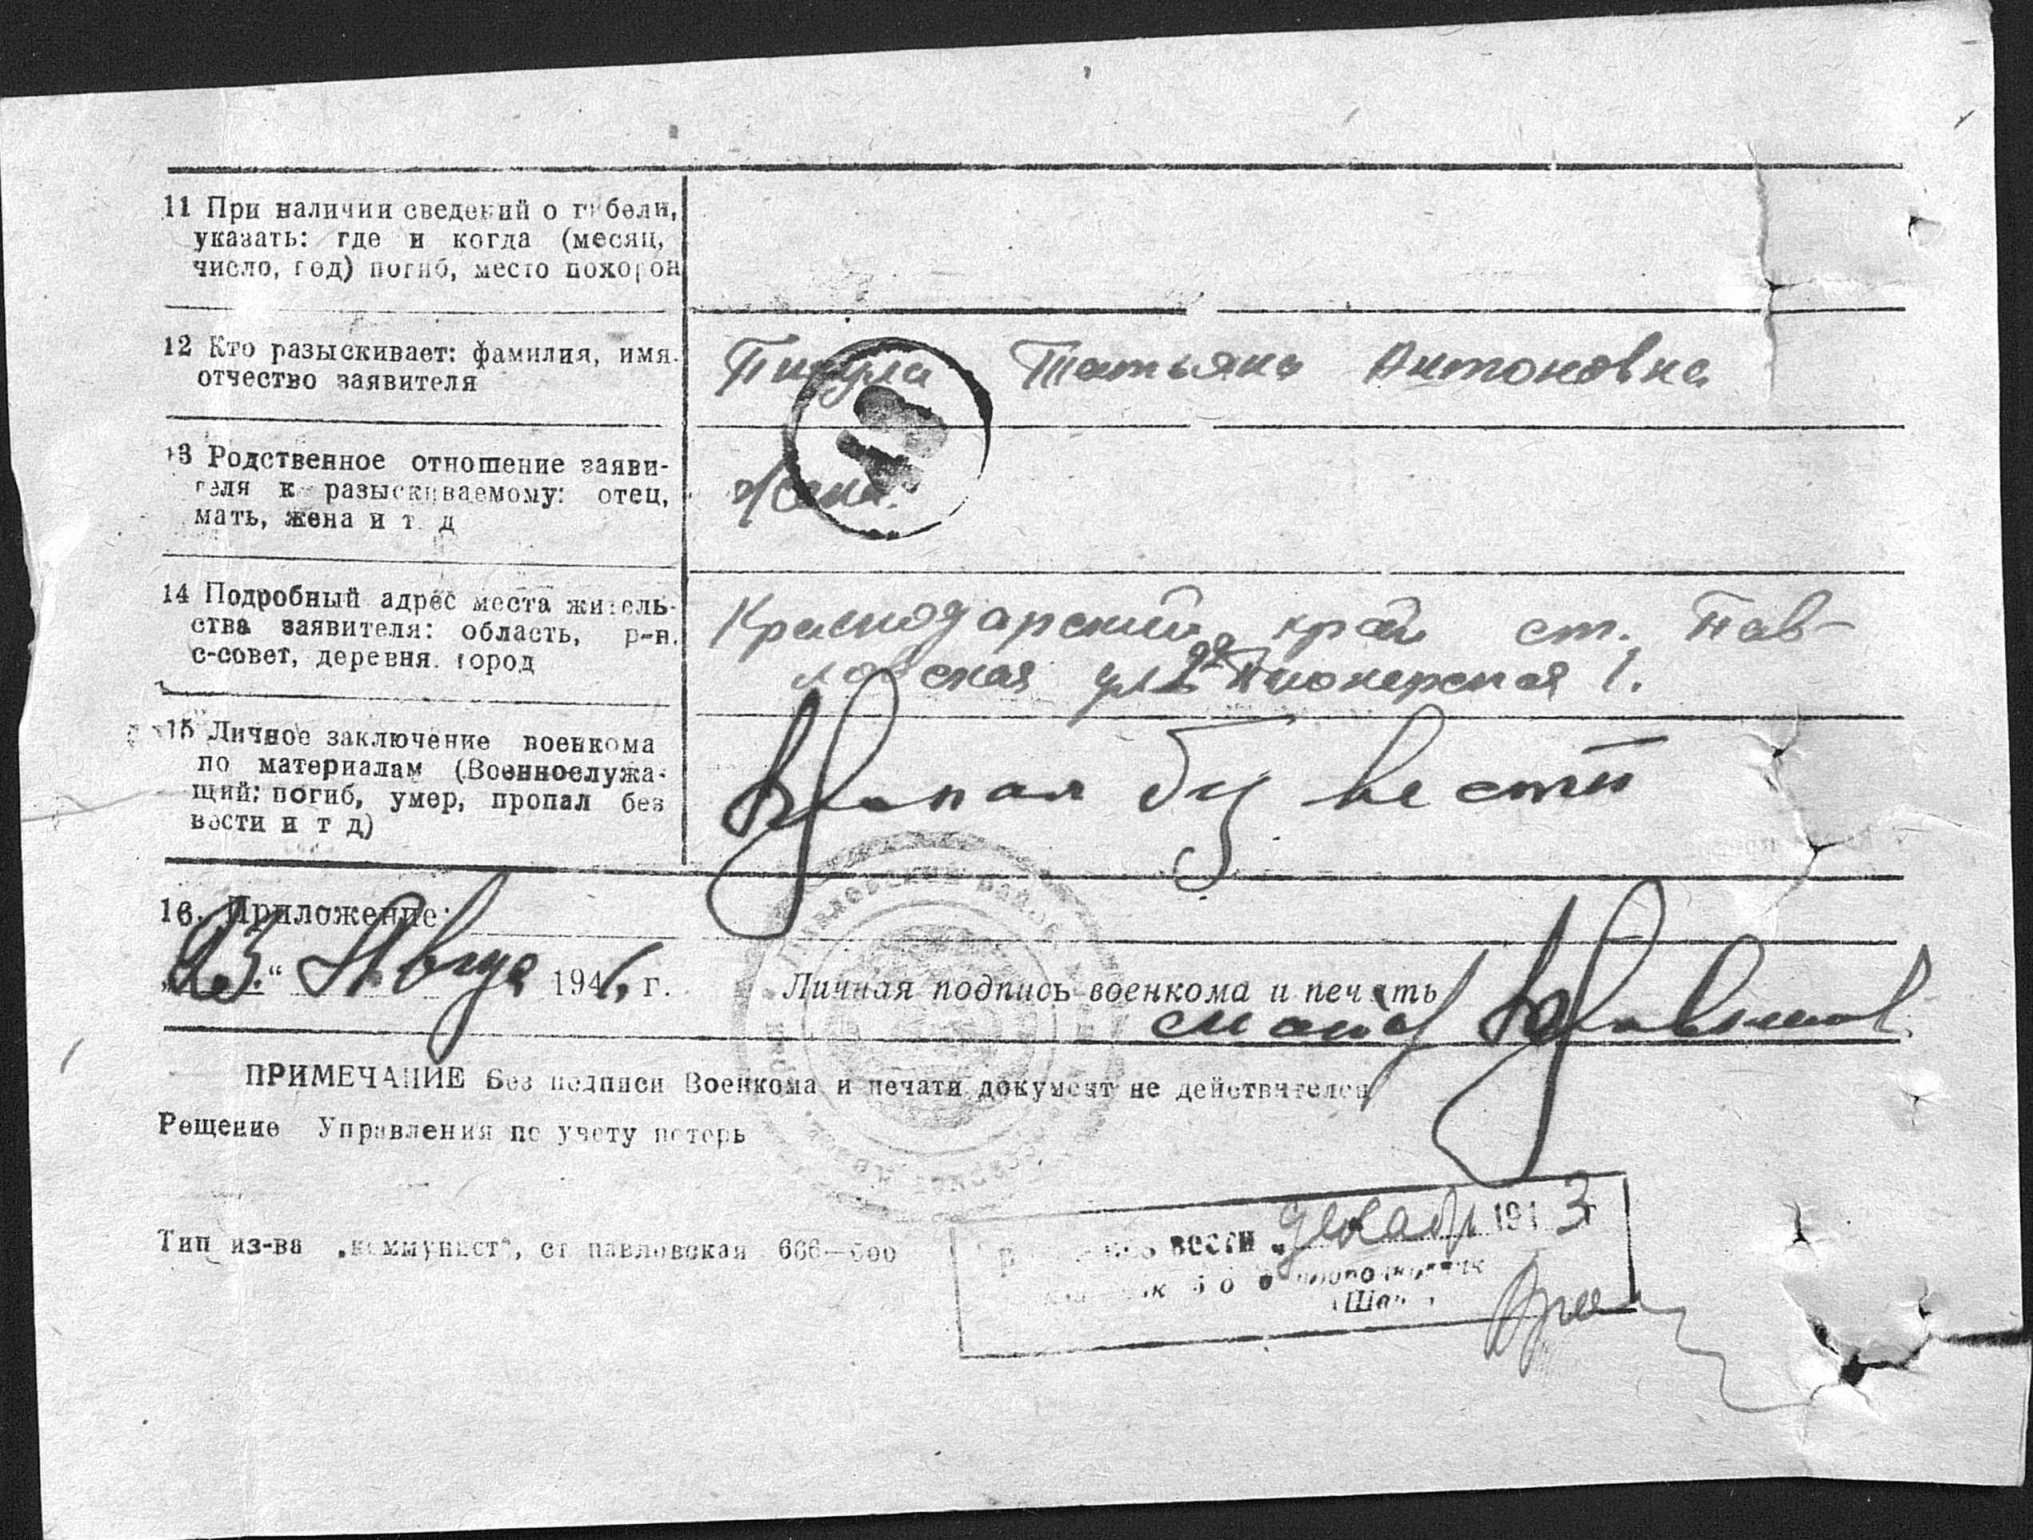 11 При наличии сведений о гибели,
указать: где и когда (месяц,
число, год) погиб, место похорон
12 Кто разыскивает: фамилия, имя.
отчество заявителя
Татьяна Антоновна
13 Родственное отношение заяви-
теля к разыскиваемому: отец,
мать, жена и т д
Жена.
14 Подробный адрес места житель-
ства заявителя: область, р-н.
с-совет, деревня. город
Краснодарский край ст. Пав-
ловская ул. Пионерская 1.
15 Личное заключение военкома
по материалам (Военнослужа-
щий: погиб, умер, пропал без
вести и т д)
Пропал без вести
16. Приложение:
„23.“ Августа 1946 г.
Личная подпись военкома и печать
майор
ПРИМЕЧАНИЕ Без подписи Военкома и печати документ не действителен
Рещение Управления по учету потерь
Тип из-ва „коммунист“, ст павловская 666—500
вести „декабр 1943 г